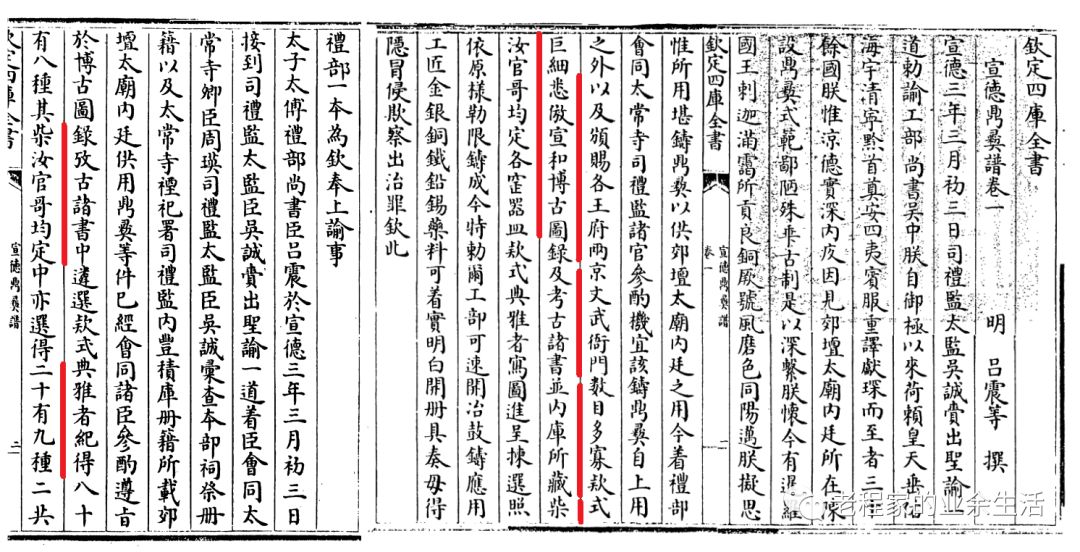 欽定四庫全書
宣德鼎彝譜卷一
明 呂震等 撰
宣德三年三月初三日司禮監太監吳誠賫出聖諭一
道勅諭工部尚書吳中朕自御極以來荷賴皇天垂佑
海宇清寧黔首真安四夷賓服重譯獻琛而至者三十
餘國朕惟涼德實深內疚因見郊壇太廟內廷所在陳
設鼎彝式範鄙陋殊乖古制是以深繫朕懷今有暹羅
國王剌迦滿靄所貢良銅厥號風磨色同陽邁朕擬思
欽定四庫全書
卷一
宣德鼎彝譜
二
惟所用堪鑄鼎彝以供郊壇太廟內廷之用今着禮部
會同太常寺司禮監諸官參酌機宜該鑄鼎彝自上用
之外以及頒賜各王府兩京文武衙門數目多寡款式
巨細悉倣宣和博古圖錄及考古諸書並內庫所藏柴
汝官哥均定各窰器皿款式典雅者寫圖進呈揀選照
依原樣勒限鑄成今特勅爾工部可速開冶鼓鑄應用
工匠金銀銅鐵鉛錫藥料可着實明白開册具奏毋得
隱冒侵欺察出治罪欽此
禮部一本為欽奉上諭事
太子太傅禮部尚書臣呂震於宣德三年三月初三日
接到司禮監太監臣吳誠賫出聖諭一道着臣會同太
常寺卿臣周瑛司禮監太監臣吳誠彙查本部祠祭册
籍以及太常寺禋祀署司禮監內豐積庫册籍所載郊
壇太廟內廷供用鼎彝等件已經會同諸臣參酌遵旨
於博古圖錄攷古諸書中遴選款式典雅者紀得八十
有八種其柴汝官哥均定中亦選得二十有九種二共
宣德鼎彝譜
二
老程家的业余生活